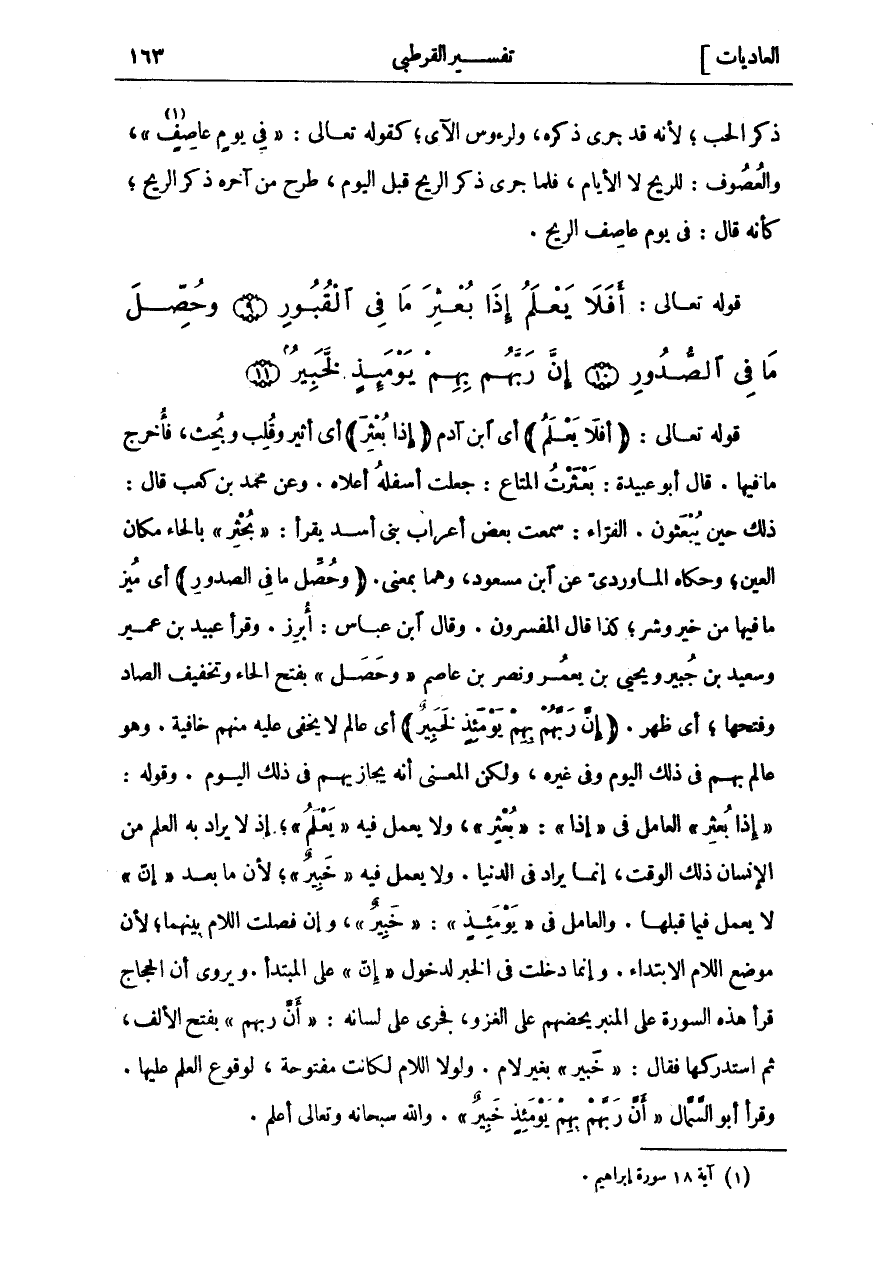 العاديات ] تفسير القرطبي ١٦٣
ذكر الحب ؛ لأنه قد جرى ذكره، ولرءوس الآى؛ كقوله تعالى : « فِي يومٍ عاصِفٍ (١) »،
والعُصُوف : للريح لا الأيام ، فلما جرى ذكر الريح قبل اليوم ، طرح من آخره ذكر الريح ؛
كأنه قال : فى يوم عاصِف الريح .
قوله تعالى : أَفَلَا يَعْلَمُ إِذَا بُعْثِرَ مَا فِى ٱلْقُبُورِ ۝٩ وَحُصِّلَ
مَا فِى ٱلصُّدُورِ ۝١٠ إِنَّ رَبَّهُم بِهِمْ يَوْمَئِذٍ لَّخَبِيرٌۢ ۝١١
قوله تعالى : ﴿ أَفَلَا يَعْلَمُ ﴾ أى ٱبن آدم ﴿ إِذا بُعْثِرَ ﴾ أى أثير وقُلِب وبُحِث، فأُخرج
ما فيها . قال أبو عبيدة : بَعْثَرْتُ المتاع : جعلت أسفلهُ أعلاه . وعن محمد بن كعب قال :
ذلك حين يُبْعَثون . الفرّاء : سمعت بعض أعراب بنى أسد يقرأ : « بُحْثِرَ » بالحاء مكان
العين؛ وحكاه الماوردىّ عن ٱبن مسعود، وهما بمعنى. ﴿ وحُصِّل ما فِى الصدورِ ﴾ أى مُيِّز
ما فيها من خير وشر؛ كذا قال المفسرون . وقال ٱبن عباس : أُبرِز . وقرأ عبيد بن عمير
وسعيد بن جُبير ويحيى بن يعمُر ونصر بن عاصم « وحَصَلَ » بفتح الحاء وتخفيف الصاد
وفتحها ؛ أى ظهر . ﴿ إِنَّ رَبَّهُمْ بِهِمْ يَوْمَئِذٍ لَخَبِيرٌ ﴾ أى عالم لا يخفى عليه منهم خافية . وهو
عالم بهم فى ذلك اليوم وفى غيره ، ولكن المعنى أنه يجازيهم فى ذلك اليوم . وقوله :
« إِذا بُعثِر» العامل فى « إذا » : « بُعْثِر »، ولا يعمل فيه « يَعْلَمُ »؛ إذ لا يراد به العلم من
الإنسان ذلك الوقت، إنما يراد فى الدنيا . ولا يعمل فيه « خَبِيرٌ »؛ لأن ما بعد « إنّ »
لا يعمل فيما قبلها . والعامل فى « يَوْمَئِذٍ » : « خَبِيرٌ »، وإن فصلت اللام بينهما؛ لأن
موضع اللام الابتداء . وإنما دخلت فى الخبر لدخول « إنّ » على المبتدأ . ويروى أن الحجاج
قرأ هذه السورة على المنبر يحضهم على الغزو، فجرى على لسانه : « أَنَّ ربهم » بفتح الألف ،
ثم استدركها فقال : « خَبير » بغير لام . ولولا اللام لكانت مفتوحة ، لوقوع العلم عليها .
وقرأ أبو السَّمَّال « أَنَّ رَبَّهُمْ بِهِمْ يَوْمَئِذٍ خَبِيرٌ » . والله سبحانه وتعالى أعلم .
(١) آية ١٨ سورة إبراهيم .